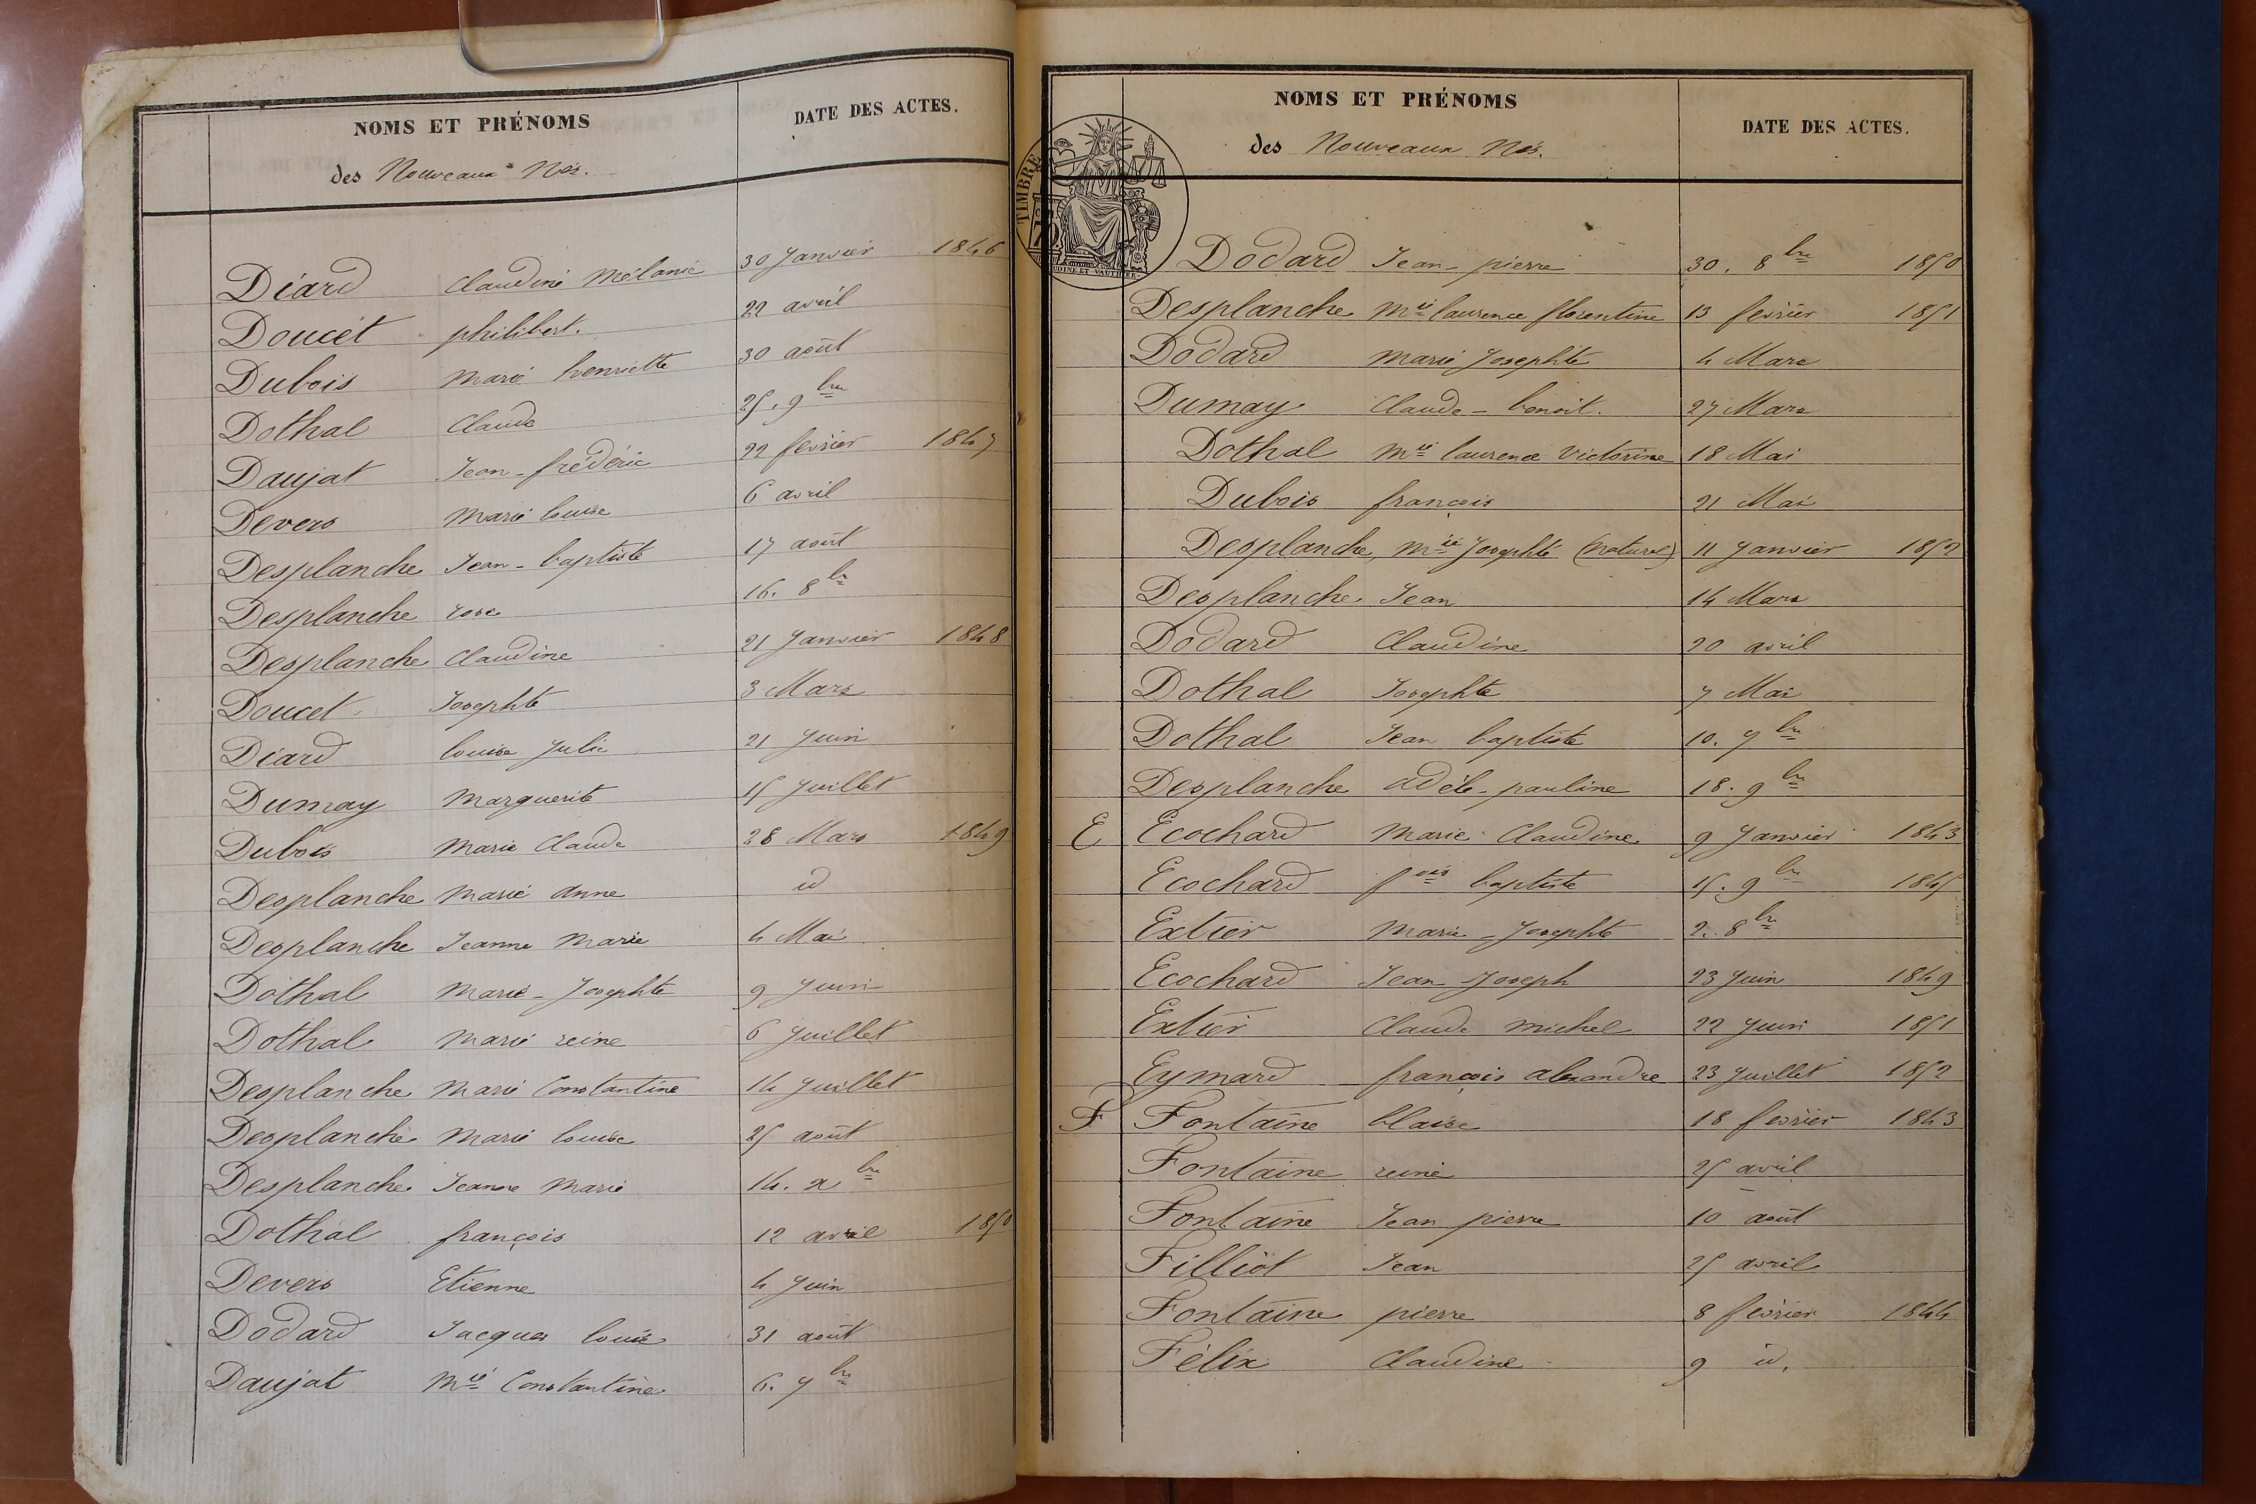 NOMS ET PRÉNOMS
des Nouveaux Nés.
DATE DES ACTES.
Diard Claudine Mélanie 30 Janvier 1846
Doucet philibert. 22 avril
Dubois Marie henriette 30 août
Dothal Claude 25. 9bre
Daujat Jean-frédéric 22 février 1847
Devers Marie louise 6 avril
Desplanche Jean-baptiste 17 août
Desplanche rose 16. 8bre
Desplanche Claudine 21 Janvier 1848
Doucet Josephte 3 Mars
Diard louise Julie 21 Juin
Dumay Marguerite 15 Juillet
Dubois Marie Claude 28 Mars 1849
Desplanche Marie anne id
Desplanche Jeanne Marie 4 Mai
Dothal Marie-Josephte 9 Juin
Dothal Marie reine 6 Juillet
Desplanche Marie Constantine 14 Juillet
Desplanche Marie louise 25 août
Desplanche Jeanne Marie 14. xbre
Dothal françois 12 avril 1850
Devers Etienne 4 Juin
Dodard Jacques louis 31 août
Daujat Mie Constantine 6. 7bre
NOMS ET PRÉNOMS
des Nouveaux Nés.
DATE DES ACTES.
TIMBRE
Dodard Jean-pierre 30. 8bre 1850
Desplanche Mie laurence florentine 13 février 1851
Dodard Marie Josephte 4 Mars
Dumay Claude-benoit. 27 Mars
Dothal Mie laurence Victorine 18 Mai
Dubois françois 21 Mai
Desplanche, Mie Josephte (naturel) 11 Janvier 1852
Desplanche Jean 14 Mars
Dodard Claudine 20 avril
Dothal Josephte 7 Mai
Dothal Jean baptiste 10. 7bre
Desplanche adèle-pauline 18. 9bre
E Ecochard Marie Claudine 9 Janvier 1843
Ecochard fois baptiste 15. 9bre 1845
Extier Marie-Josephte 2. 8bre
Ecochard Jean-Joseph 23 Juin 1849
Extier Claude Michel 22 Juin 1851
Eymard françois alexandre 23 Juillet 1852
F Fontaine blaise 18 février 1843
Fontaine reine 25 avril
Fontaine Jean pierre 10 août
Filliot Jean 25 avril
Fontaine pierre 8 février 1844
Félix Claudine 9 id.